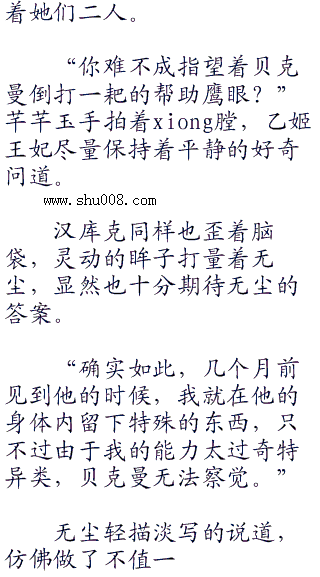 着她们二人。
“你难不成指望着贝克
曼倒打一耙的帮助鹰眼？”
芊芊玉手拍着xiong膛，乙姬
王妃尽量保持着平静的好奇
问道。
www.shu008.com
汉库克同样也歪着脑
袋，灵动的眸子打量着无
尘，显然也十分期待无尘的
答案。
“确实如此，几个月前
见到他的时候，我就在他的
身体内留下特殊的东西，只
不过由于我的能力太过奇特
异类，贝克曼无法察觉。”
无尘轻描淡写的说道，
仿佛做了不值一